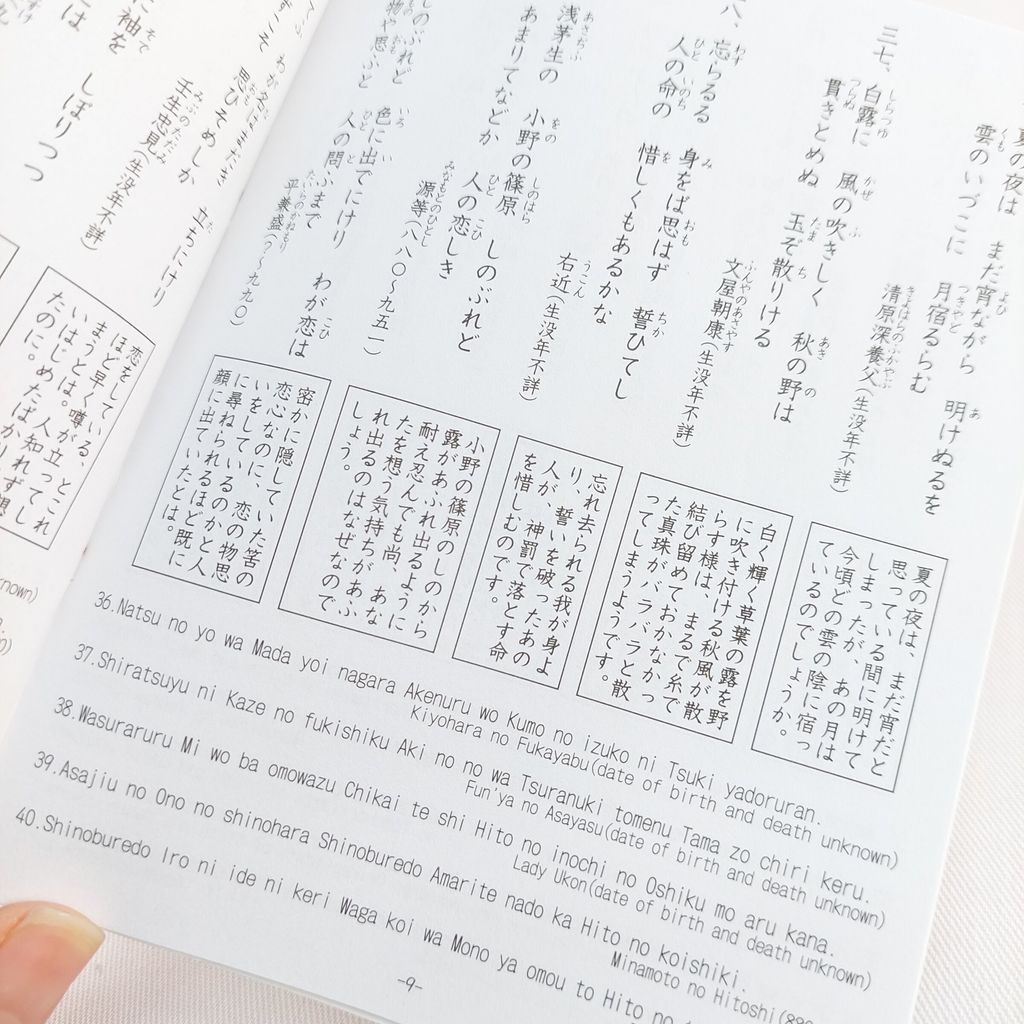 夏の夜は まだ宵ながら 明けぬるを
雲のいづこに 月宿るらむ
清原深養父(生没年不詳)
三七、白露に 風の吹きしく 秋の野は
貫きとめぬ 玉ぞ散りける
文屋朝康(生没年不詳)
八、忘らるる 身をば思はず 誓ひてし
人の命の 惜しくもあるかな
右近(生没年不詳)
浅茅生の 小野の篠原 しのぶれど
あまりてなどか 人の恋しき
源等(八八〇〜九五一)
しのぶれど 色に出でにけり わが恋は
物や思ふと 人の問ふまで
平兼盛(?〜九九〇)
夏の夜は、まだ宵だと
思っている間に明けて
しまったが、あの月は
今頃どの雲の陰に宿っ
ているのでしょうか。
白く輝く草葉の露を野
に吹き付ける秋風が散
らす様は、まるで糸で
結び留めておかなかっ
た真珠がバラバラと散
ってしまうようです。
忘れ去られる我が身よ
り、誓いを破ったあの
人が、神罰で落とす命
を惜しむのです。
小野の篠原のしのから
露があふれ出るように
耐え忍んでも尚、あな
たを想う気持ちがあふ
れ出るのはなぜなので
しょう。
密かに隠していた筈の
恋心なのに、恋の物思
いをしているのかと人
に尋ねられるほど既に
顔に出ていたとは。
36.Natsu no yo wa Mada yoi nagara Akenuru wo Kumo no izuko ni Tsuki yadoruran.
Kiyohara no Fukayabu(date of birth and death unknown)
37.Shiratsuyu ni Kaze no fukishiku Aki no no wa Tsuranuki tomenu Tama zo chiri keru.
Fun'ya no Asayasu(date of birth and death unknown)
38.Wasuraruru Mi wo ba omowazu Chikai te shi Hito no inochi no Oshiku mo aru kana.
Lady Ukon(date of birth and death unknown)
39.Asajiu no Ono no shinohara Shinoburedo Amarite nado ka Hito no koishiki.
Minamoto no Hitoshi(880
40.Shinoburedo Iro ni ide ni keri Waga koi wa Mono ya omou to Hito no
-9-
わが名はまだき 立ちにけり
こそ 思ひそめしか
壬生忠見(生没年不詳)
に袖を しぼりつつ
恋をしている、とこれ
ほど早く噂が立ってし
まうとは。人知れず想
いはじめたばかり
たのに。
nown)